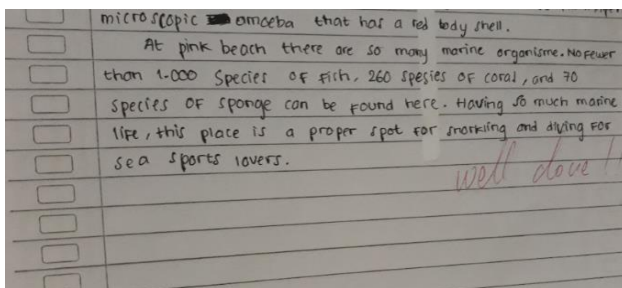 microscopic amoeba that has a red body shell.
At pink beach there are so many marine organisme. No fewer
than 1.000 Species OF Fish, 260 spesies OF coral, and 70
species OF sponge can be Found here. Having so much marine
life, this place is a proper spot For snorkling and diving For
sea sports lovers.
well done!!